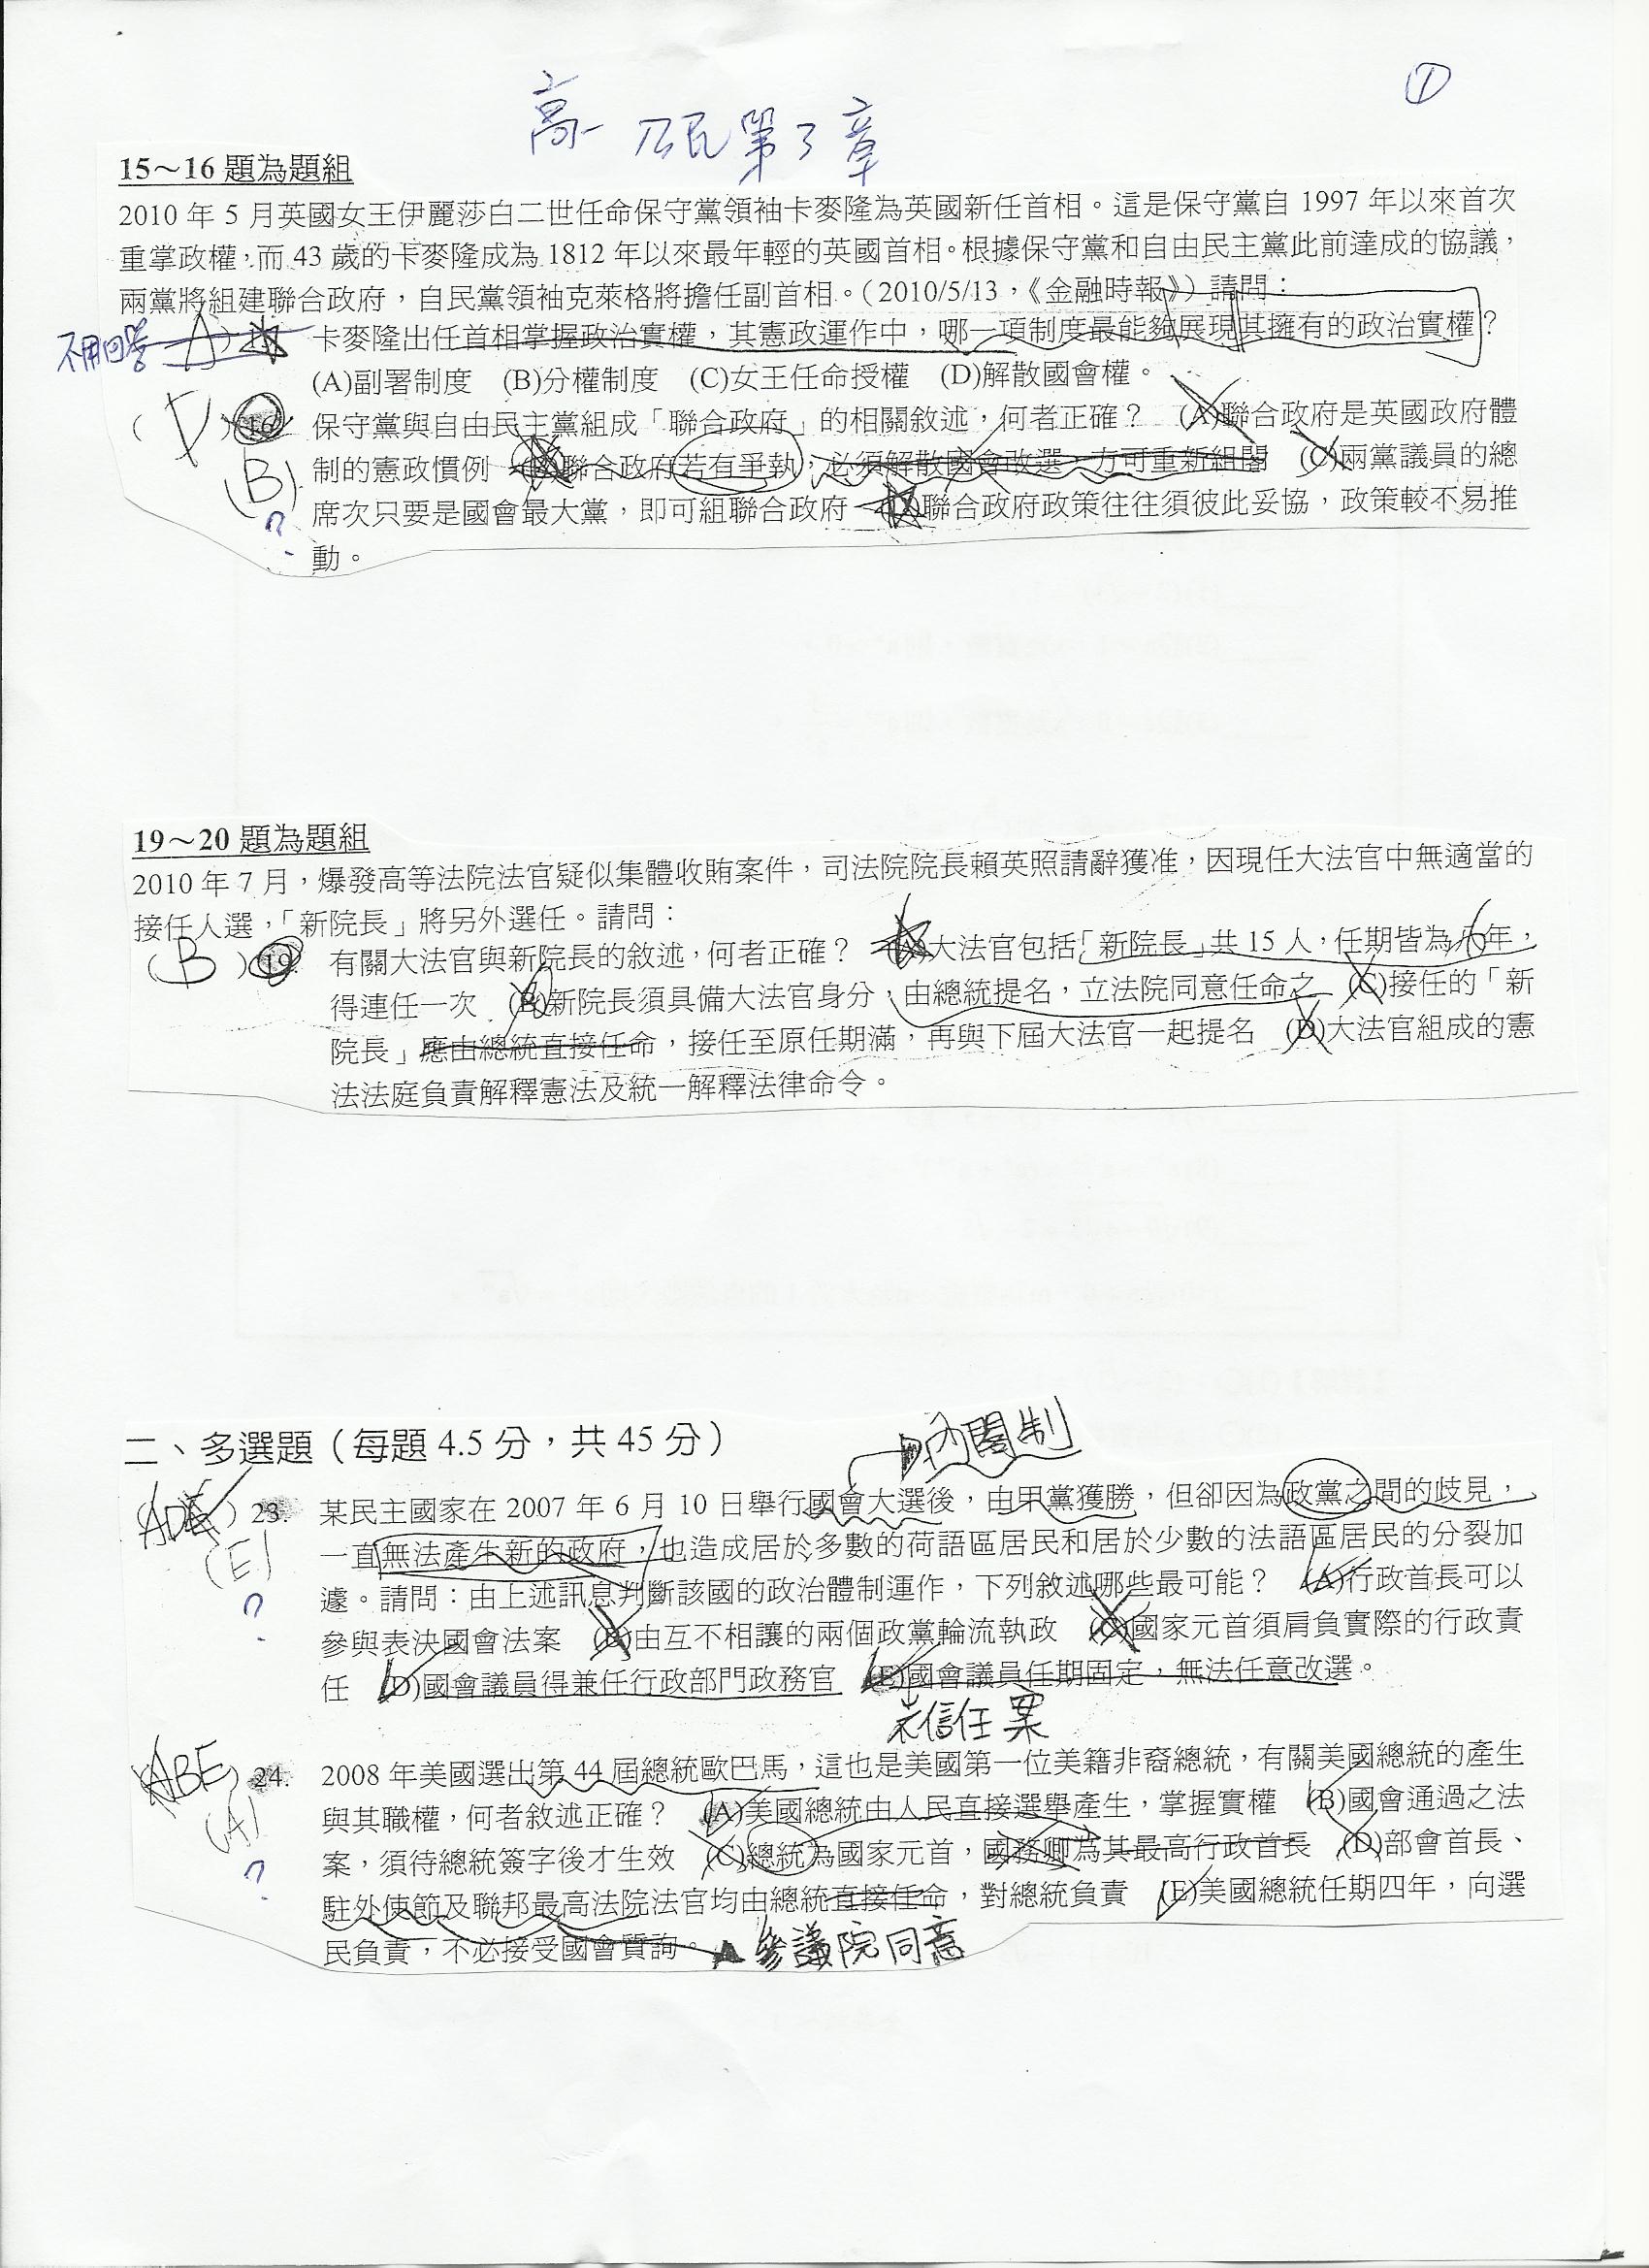 高一 公民 第3章
①
15～16 題為題組
2010 年 5 月英國女王伊麗莎白二世任命保守黨領袖卡麥隆為英國新任首相。這是保守黨自 1997 年以來首次
重掌政權，而 43 歲的卡麥隆成為 1812 年以來最年輕的英國首相。根據保守黨和自由民主黨此前達成的協議，
兩黨將組建聯合政府，自民黨領袖克萊格將擔任副首相。（2010/5/13，《金融時報》）請問：
不用回答 A ) 卡麥隆出任首相掌握政治實權，其憲政運作中，哪一項制度最能夠展現其擁有的政治實權？
(A)副署制度 (B)分權制度 (C)女王任命授權 (D)解散國會權。
( D ) 16. 保守黨與自由民主黨組成「聯合政府」的相關敘述，何者正確？ (A)聯合政府是英國政府體
制的憲政慣例 (B)聯合政府若有爭執，必須解散國會改選，方可重新組閣 (C)兩黨議員的總
(B)
席次只要是國會最大黨，即可組聯合政府 (D)聯合政府政策往往須彼此妥協，政策較不易推
?
動。
19～20 題為題組
2010 年 7 月，爆發高等法院法官疑似集體收賄案件，司法院院長賴英照請辭獲准，因現任大法官中無適當的
接任人選，「新院長」將另外選任。請問：
( B ) 19. 有關大法官與新院長的敘述，何者正確？ (A)大法官包括「新院長」共 15 人，任期皆為八年，
得連任一次 (B)新院長須具備大法官身分，由總統提名，立法院同意任命之 (C)接任的「新
院長」應由總統直接任命，接任至原任期滿，再與下屆大法官一起提名 (D)大法官組成的憲
法法庭負責解釋憲法及統一解釋法律命令。
二、多選題（每題 4.5 分，共 45 分）
內閣制
(ADE) 23. 某民主國家在 2007 年 6 月 10 日舉行國會大選後，由甲黨獲勝，但卻因為政黨之間的歧見，
一直無法產生新的政府，也造成居於多數的荷語區居民和居於少數的法語區居民的分裂加
(E)
遽。請問：由上述訊息判斷該國的政治體制運作，下列敘述哪些最可能？ (A)行政首長可以
?
參與表決國會法案 (B)由互不相讓的兩個政黨輪流執政 (C)國家元首須肩負實際的行政責
任 (D)國會議員得兼任行政部門政務官 (E)國會議員任期固定，無法任意改選。
未信任案
(ABE) 24. 2008 年美國選出第 44 屆總統歐巴馬，這也是美國第一位美籍非裔總統，有關美國總統的產生
與其職權，何者敘述正確？ (A)美國總統由人民直接選舉產生，掌握實權 (B)國會通過之法
(A)
案，須待總統簽字後才生效 (C)總統為國家元首，國務卿為其最高行政首長 (D)部會首長、
?
駐外使節及聯邦最高法院法官均由總統直接任命，對總統負責 (E)美國總統任期四年，向選
民負責，不必接受國會質詢。
參議院同意